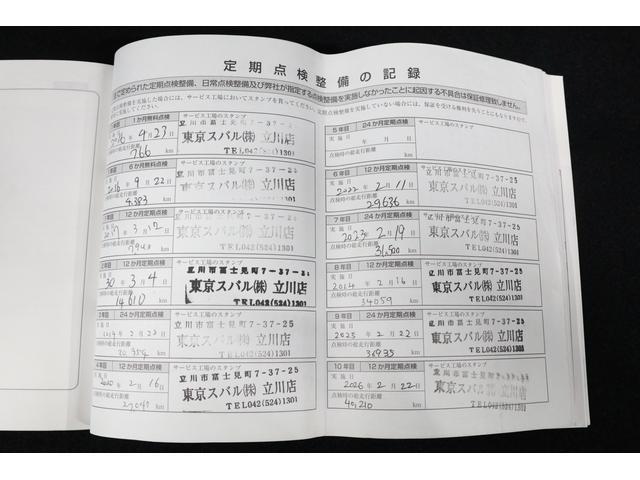 定期点検整備の記録
で定められた定期点検整備、日常点検整備及び弊社が指定する点検整備を実施しなかったことに起因する不具合は保証修理致しません。
を実施した場合には、サービス工場においてスタンプを貰ってください。定期点検整備を実施していない場合には、保証を受ける権利を失うことにもなりますので、
1か月無料点検
サービス工場のスタンプ
立川市富士見町7-37-25
9月23日
東京スバル㈱ 立川店
766 km
TEL042(524)1301
6か月無料点検
サービス工場のスタンプ
立川市富士見町7-37-25
2016年9月22日
東京スバル㈱ 立川店
点検時の総走行距離
4,383 km
TEL042(524)1301
12か月定期点検
サービス工場のスタンプ
立川市富士見町7-37-25
3月12日
東京スバル㈱ 立川店
km
TEL042(524)1301
12か月定期点検
サービス工場のスタンプ
立川市富士見町7-37-25
30年3月4日
東京スバル㈱ 立川店
14610 km
TEL042(524)1301
3年目 24か月定期点検
サービス工場のスタンプ
立川市富士見町7-37-25
2月23日
東京スバル㈱ 立川店
km
TEL042(524)1301
4年目 12か月定期点検
サービス工場のスタンプ
立川市富士見町7-37-25
2020年2月16日
東京スバル㈱ 立川店
点検時の総走行距離
km
TEL042(524)1301
5年目 24か月定期点検
サービス工場のスタンプ
実施日
年 月 日
点検時の総走行距離
km
6年目 12か月定期点検
サービス工場のスタンプ
立川市富士見町7-37-25
実施日
2022年2月11日
東京スバル㈱ 立川店
点検時の総走行距離
29636 km
TEL042(524)1301
7年目 24か月定期点検
サービス工場のスタンプ
立川市富士見町7-37-25
実施日
2023年2月19日
東京スバル㈱ 立川店
点検時の総走行距離
31,500 km
TEL042(524)1301
8年目 12か月定期点検
サービス工場のスタンプ
立川市富士見町7-37-25
実施日
2014年2月16日
東京スバル㈱ 立川店
点検時の総走行距離
34059 km
TEL042(524)1301
9年目 24か月定期点検
サービス工場のスタンプ
立川市富士見町7-37-25
実施日
2025年2月22日
東京スバル㈱ 立川店
点検時の総走行距離
36935 km
TEL042(524)1301
10年目 12か月定期点検
サービス工場のスタンプ
実施日
2026年2月22日
東京スバル㈱ 立川店
点検時の総走行距離
40,210 km
TEL042(524)1301